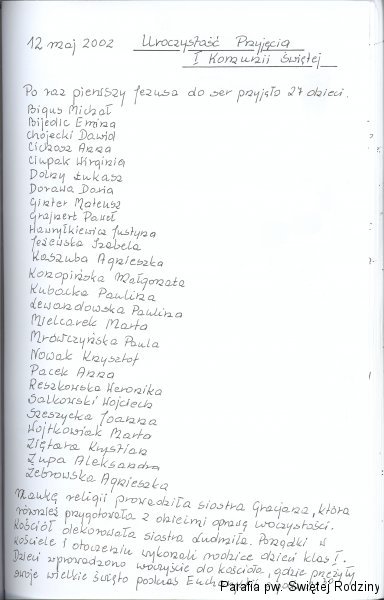 12 maj 2002 Uroczystość Przyjęcia
I Komunii Świętej
Po raz pierwszy Jezusa do serc przyjęło 27 dzieci.
Bigus Michał
Bijedic Emina
Chojecki Dawid
Cichosz Anna
Ciupak Wirginia
Dolny Łukasz
Dorawa Daria
Ginter Mateusz
Grajnert Paweł
Hawryłkiewicz Justyna
Jeżewska Izabela
Kaszuba Agnieszka
Konopińska Małgorzata
Kubacka Paulina
Lewandowska Paulina
Mielcarek Marta
Mrówczyńska Paula
Nowak Krzysztof
Pacek Anna
Reszkowska Weronika
Salkowski Wojciech
Szeszycka Joanna
Wojtkowiak Marta
Ziętara Krystian
Zupa Aleksandra
Żebrowska Agnieszka
Naukę religii prowadziła siostra Grajana, która
również przygotowała z dziećmi oprawę uroczystości.
Kościół dekorowała siostra Ludmiła. Porządki w
kościele i otoczeniu wykonali rodzice dzieci klas I.
Dzieci wprowadzono uroczyście do kościoła, gdzie przeżyły
swoje wielkie święto podczas
Parafia pw. Świętej Rodziny